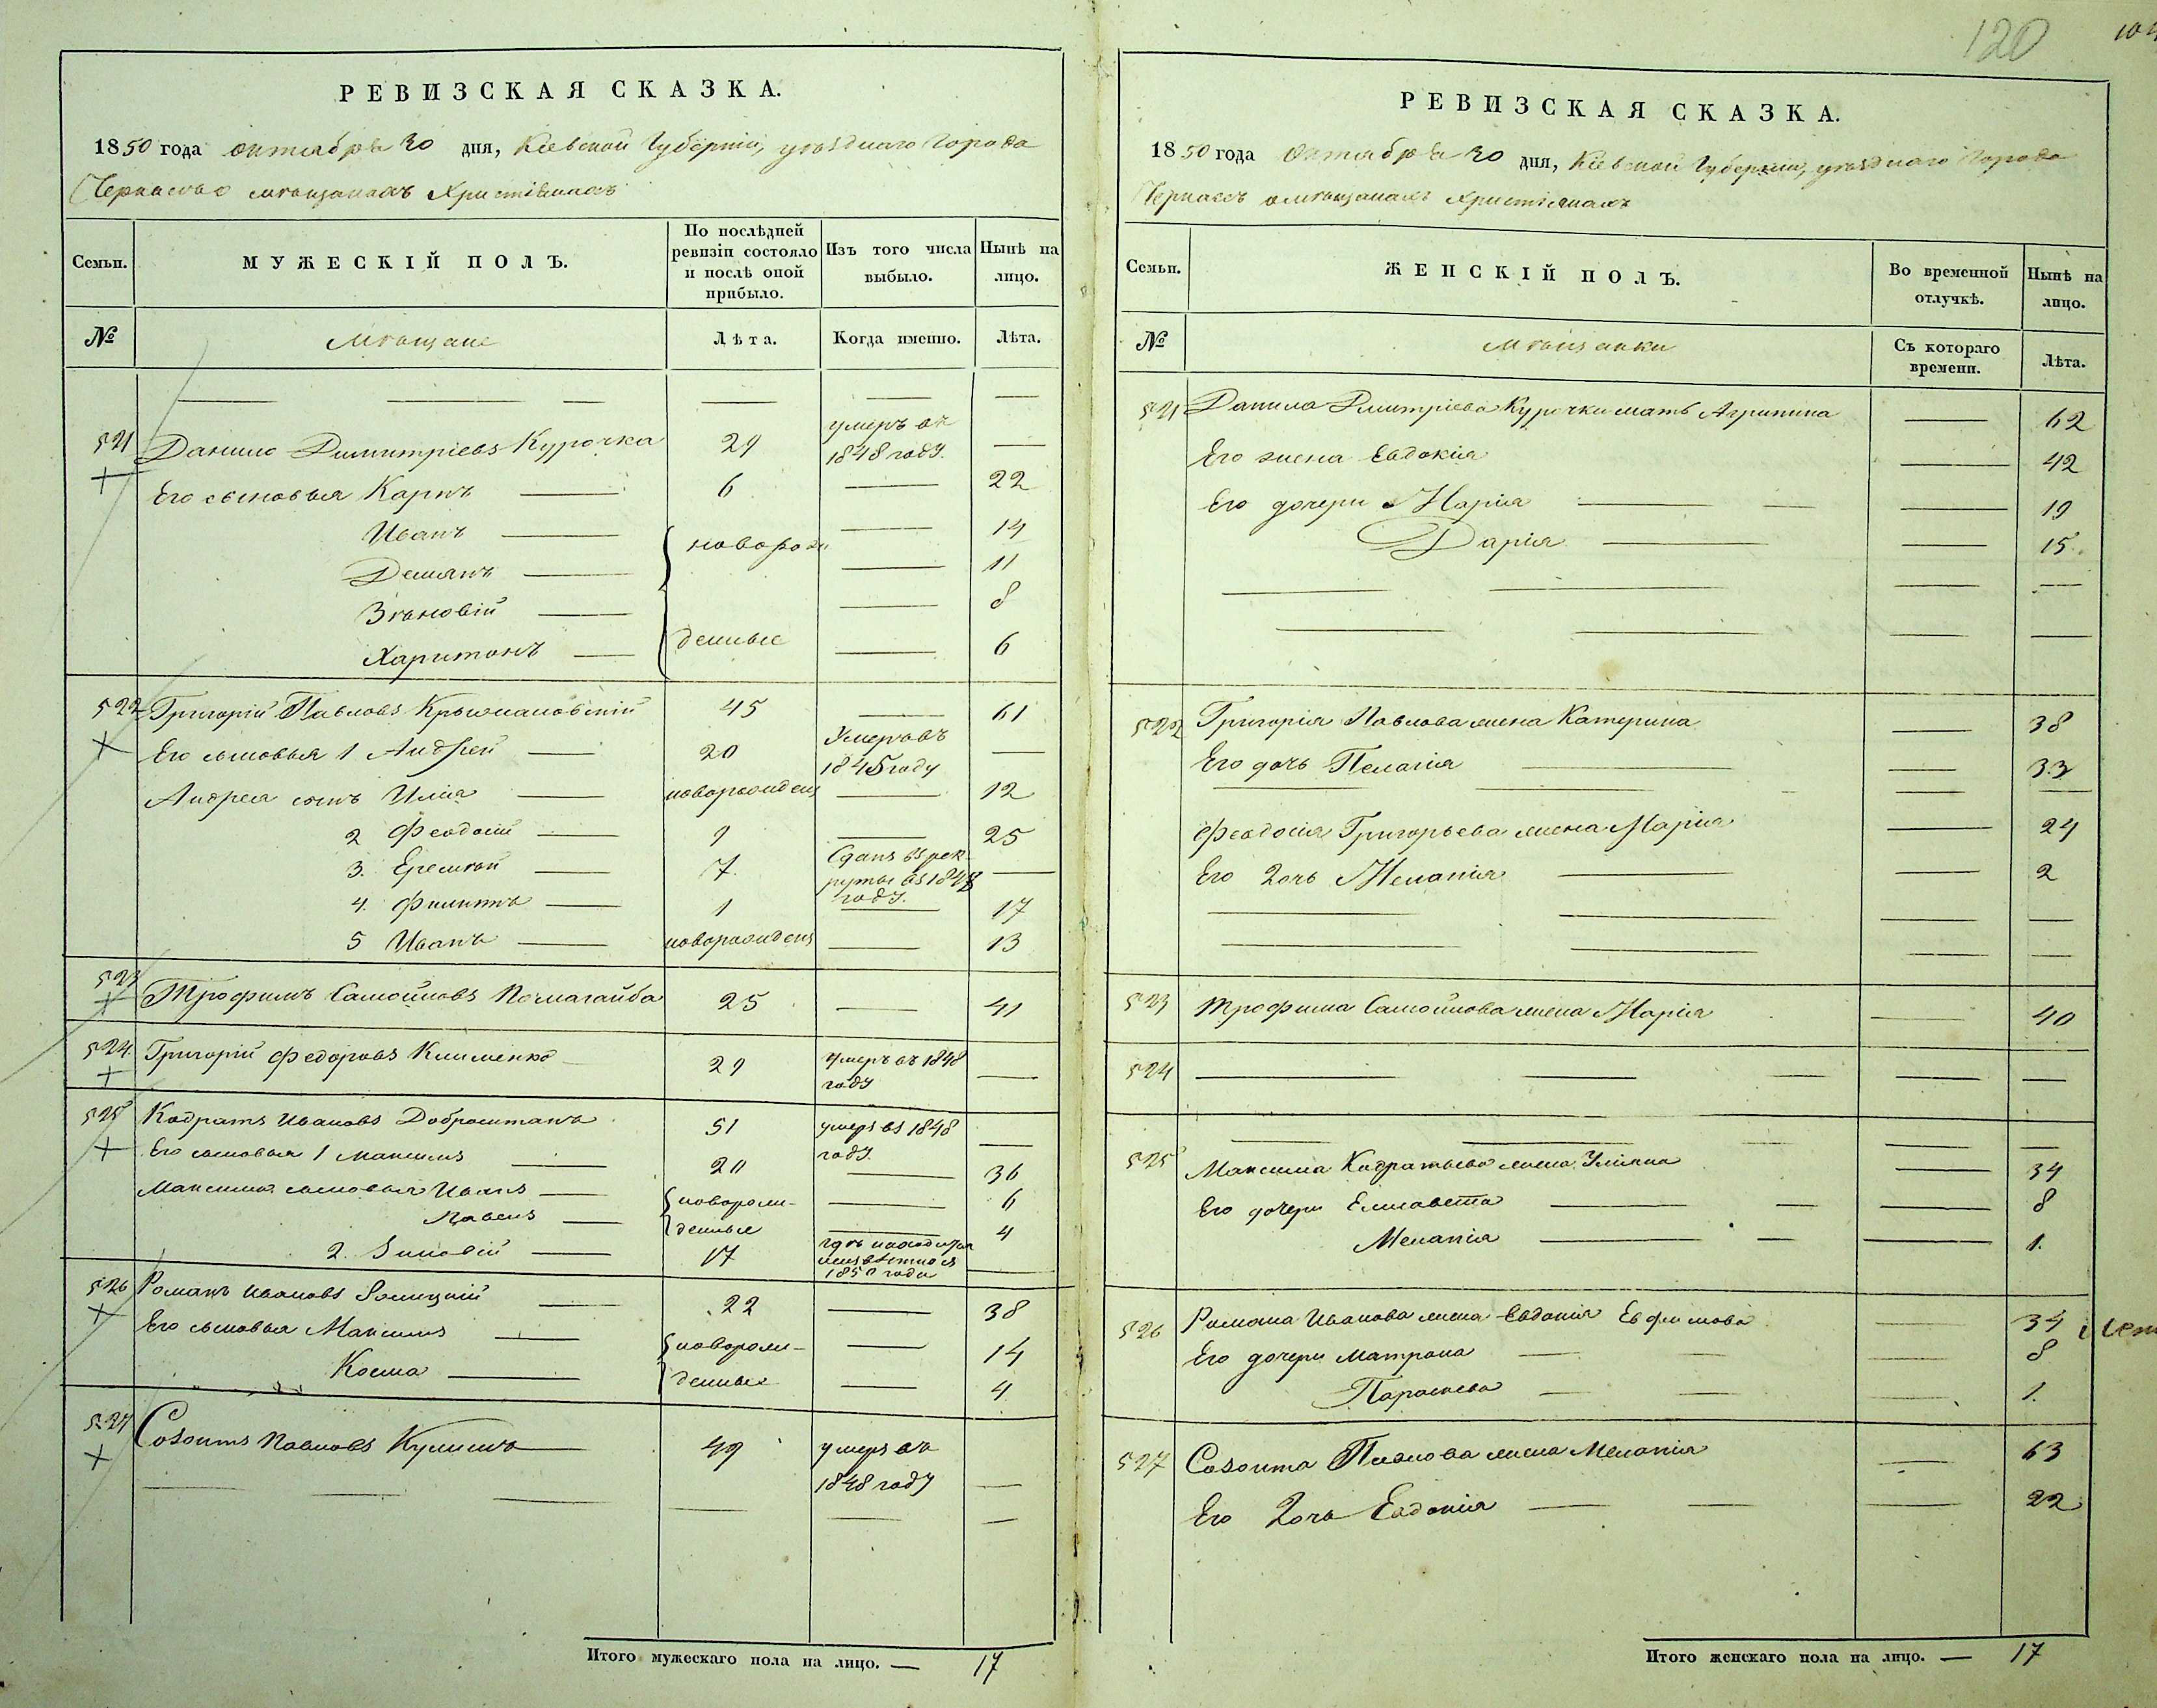 120
РЕВИЗСКАЯ СКАЗКА.
1850 года октября 30 дня, Кіевской Губерніи, уѣзднаго Города
Черкасъ о мѣщанахъ Христіянахъ
Семьи. МУЖЕСКІЙ ПОЛЪ. По послѣдней ревизіи состояло и послѣ оной прибыло. Изъ того числа выбыло. Нынѣ на лицо.
№ Мѣщане Лѣта. Когда именно. Лѣта.
521 Данило Димитріевъ Курочка 29 умеръ въ 1848 году. —
Его сыновья Карпъ — 6 — 22
Иванъ — новорож — 14
Демянъ — — 11
Зѣновій — — 8
Харитонъ — денные — 6
522 Григорій Павловъ Крыжановскій 45 — 61
Его сыновья 1 Андрей — 20 Умеръ въ 1845 году —
Андрея сынъ Илія — новорожденъ — 12
2 Феодосій — 9 — 25
3. Еремѣй — 7. Сданъ въ рекруты въ 1848 году. —
4. Филипъ — 1 — 17
5 Иванъ — новорожденъ — 13
523 Трофимъ Самойловъ Помагайба 25 — 41
524. Григорій Федоровъ Клименко 29 умеръ въ 1848 году —
525 Кодратъ Ивановъ Доброштанъ 51 умеръ въ 1848 году. —
Его сыновья 1 Максимъ — 20 — 36
Максима сыновья Иванъ — новорож- — 6
Павелъ — денные — 4
2. Зиновій — 17 гдѣ находится неизвѣстно съ 1850 года —
526 Романъ Ивановъ Золицкій — 22 — 38
Его сыновья Максимъ — новорож- — 14
Косма — денные — 4
527 Созонтъ Павловъ Кулишъ — 49 умеръ въ 1848 году —
Итого мужескаго пола на лицо. — 17
РЕВИЗСКАЯ СКАЗКА.
1850 года Октября 30 дня, Кіевской Губерніи, уѣзднаго Города
Черкасъ о мѣщанахъ Христіянахъ
Семьи. ЖЕНСКІЙ ПОЛЪ. Во временной отлучкѣ. Нынѣ на лицо.
№ Мѣщанки Съ котораго времени. Лѣта.
521 Данила Дмитріева Курочки мать Агрипина — 62
Его жена Евдокія — 42
Его дочери Марія — — 19
Дарія — — 15.
522 Григорія Павлова жена Катерина — 38
Его дочь Пелагія — — 33
Феодосія Григорьева жена Марія — 24
Его дочь Меланія — — 2
523 Трофима Самойлова жена Марія — 40
524 — — — — —
525 Максима Кодратьева жена Уліяна — 34
Его дочери Елисавета — — 8
Меланія — — 1.
526 Романа Иванова жена Евдокія Евфимова — 34
Его дочери Матрона — — 8
Параскева — — 1.
527 Созонта Павлова жена Меланія — 63
Его дочь Евдокія — — 22
Итого женскаго пола на лицо. — 17